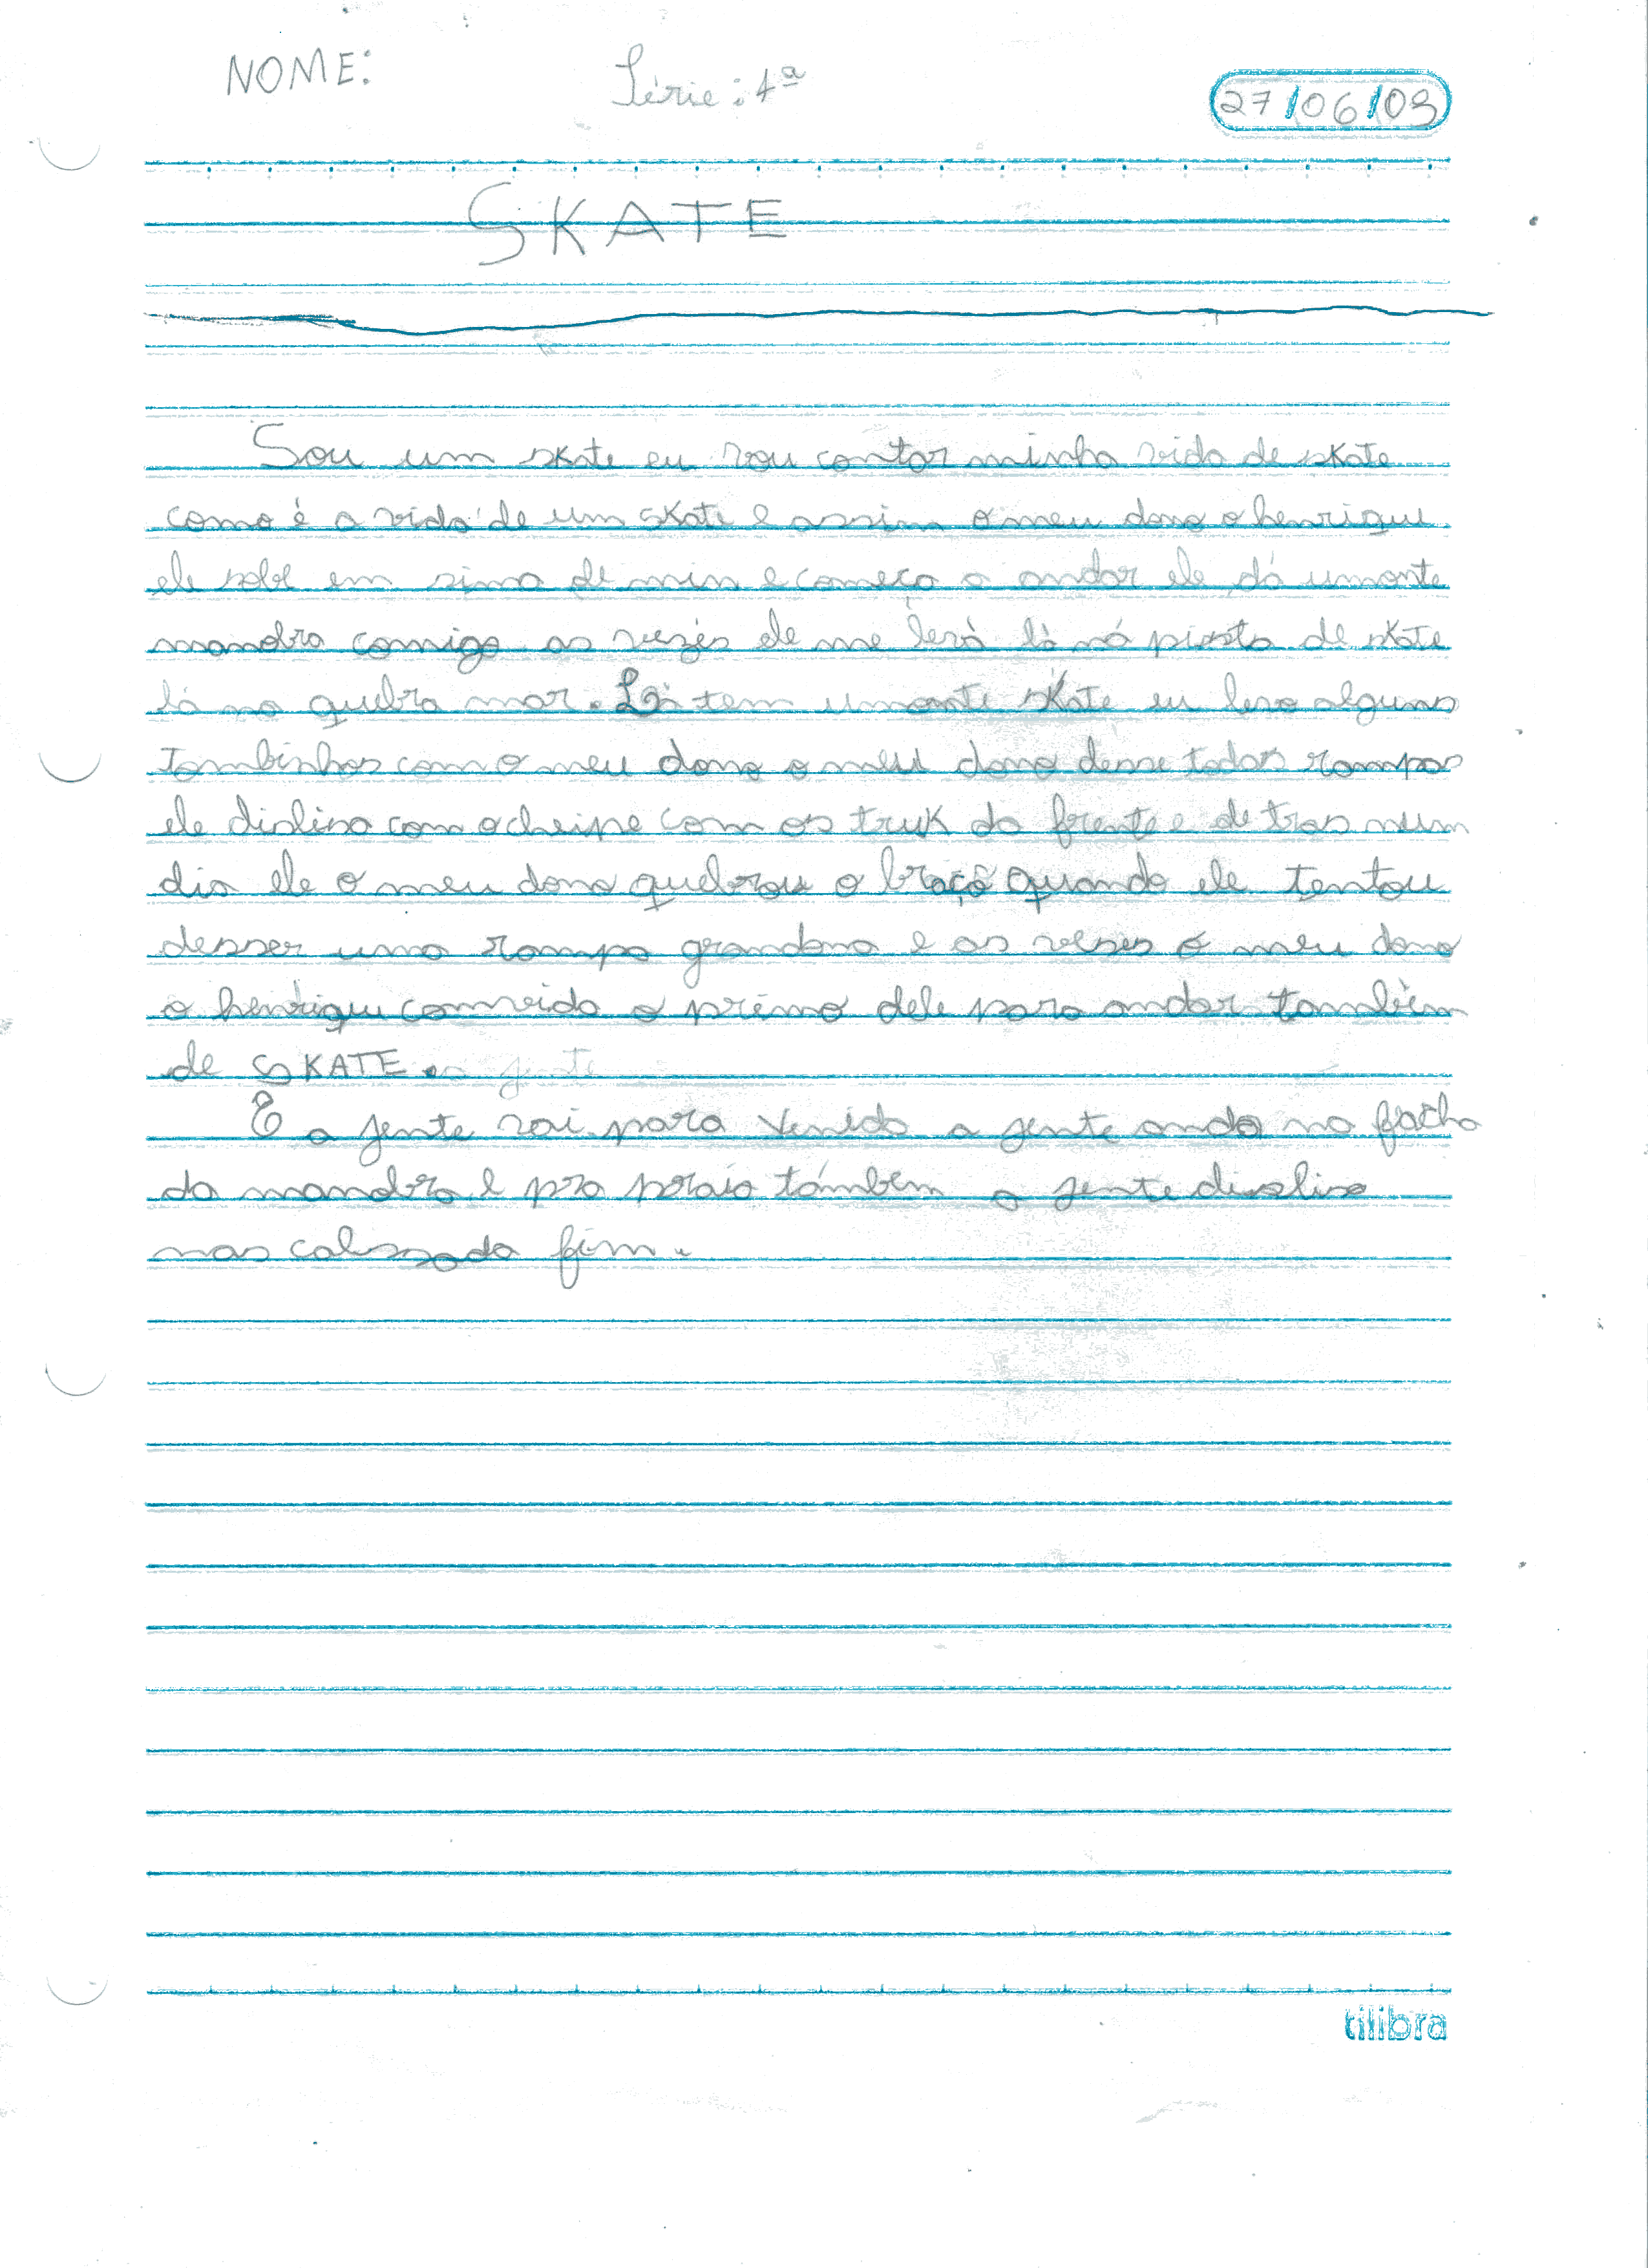 NOME: Série: 4ª 27/06/09
SKATE
Sou um skate eu vou contar minha vida de skate
como é a vida de um skate e assim o meu dono o henrique
ele sobe em sima de min e começa a andar ele dá umonte
manobra comigo as vezes ele me leva lá na pissta de skate
lá no quebra mar. Lá tem umonte skate eu levo alguns
tombinhos com o meu dono o meu dono desse todas rampas
ele disliza com o cheipe com os truk da frente e de tras num
dia ele o meu dono quebrou o braço quando ele tentou
desser uma rampa grandona e as veses o meu dono
o henrique convida o primo dele para andar também
de SKATE. a gente
E a gente vai para Venida a gente anda na facha
da manobra e pra praia também a gente disliza
nas calssada fim.
tilibra